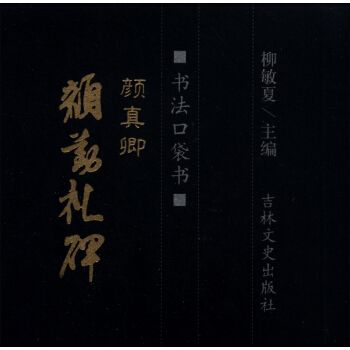 柳敏夏/主编
吉林文史出版社
■书法口袋书■
颜真卿
颜勤礼碑